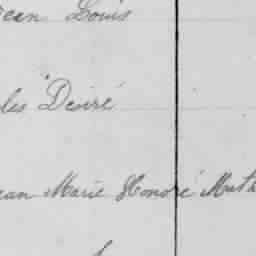 Jean Louis
les Desiré
Jean Marie Honoré Math